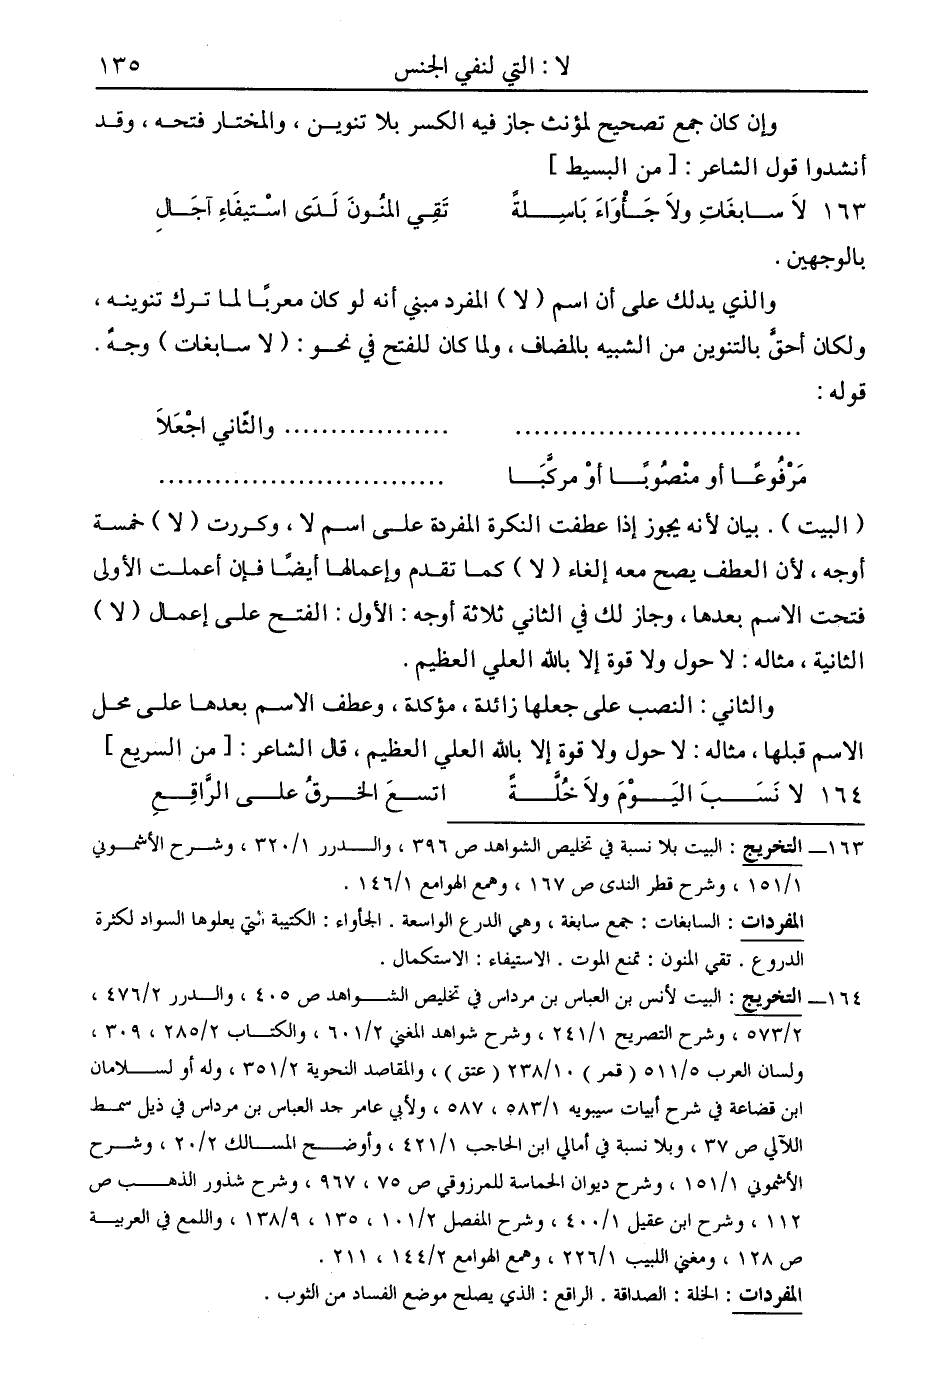 لا : التي لنفي الجنس ١٣٥
وإن كان جمع تصحيح لمؤنث جاز فيه الكسر بلا تنوين ، والمختار فتحه ، وقد
أنشدوا قول الشاعر : [ من البسيط ]
١٦٣ لاَ سابغَاتِ ولاَ جَأْوَاءَ بَاسِلةً تَقِي المنُونَ لَدَى اسْتيفَاءِ آجَالِ
بالوجهين .
والذي يدلك على أن اسم ( لا ) المفرد مبني أنه لو كان معربًا لما ترك تنوينه ،
ولكان أحقَّ بالتنوين من الشبيه بالمضاف ، ولما كان للفتح في نحو : ( لا سابغات ) وجهٌ .
قوله :
............................... .................. والثّاني اجْعَلاَ
مَرْفُوعًا أو منْصُوبًا أوْ مركَّبَا ...............................
( البيت ) . بيان لأنه يجوز إذا عطفت النكرة المفردة على اسم لا ، وكررت ( لا ) خمسة
أوجه ، لأن العطف يصح معه إلغاء ( لا ) كما تقدم وإعمالها أيضًا فإن أعملت الأولى
فتحت الاسم بعدها ، وجاز لك في الثاني ثلاثة أوجه : الأول : الفتح على إعمال ( لا )
الثانية ، مثاله : لا حول ولا قوة إلا بالله العلي العظيم .
والثاني : النصب على جعلها زائدة ، مؤكدة ، وعطف الاسم بعدها على محل
الاسم قبلها ، مثاله : لا حول ولا قوة إلا بالله العلي العظيم ، قال الشاعر : [ من السريع ]
١٦٤ لا نَسَبَ اليَوْمَ ولاَ خُلَّةً اتسعَ الخرقُ على الرَّاقِعِ
١٦٣ــ التخريج : البيت بلا نسبة في تخليص الشواهد ص ٣٩٦ ، والدرر ٣٢٠/١ ، وشرح الأشموني
١٥١/١ ، وشرح قطر الندى ص ١٦٧ ، وهمع الهوامع ١٤٦/١ .
المفردات : السابغات : جمع سابغة ، وهي الدرع الواسعة . الجأواء : الكتيبة التي يعلوها السواد لكثرة
الدروع . تقي المنون : تمنع الموت . الاستيفاء : الاستكمال .
١٦٤ــ التخريج : البيت لأنس بن العباس بن مرداس في تخليص الشواهد ص ٤٠٥ ، والدرر ٤٧٦/٢ ،
٥٧٣/٢ ، وشرح التصريح ٢٤١/١ ، وشرح شواهد المغني ٦٠١/٢ ، والكتاب ٢٨٥/٢ ، ٣٠٩ ،
ولسان العرب ٥١١/٥ ( قمر ) ٢٣٨/١٠ ( عتق ) ، والمقاصد النحوية ٣٥١/٢ ، وله أو لسلامان
ابن قضاعة في شرح أبيات سيبويه ٥٨٣/١ ، ٥٨٧ ، ولأبي عامر جد العباس بن مرداس في ذيل سمط
اللآلي ص ٣٧ ، وبلا نسبة في أمالي ابن الحاجب ٤٢١/١ ، وأوضح المسالك ٢٠/٢ ، وشرح
الأشموني ١٥١/١ ، وشرح ديوان الحماسة للمرزوقي ص ٧٥ ، ٩٦٧ ، وشرح شذور الذهب ص
١١٢ ، وشرح ابن عقيل ٤٠٠/١ ، وشرح المفصل ١٠١/٢ ، ١٣٥ ، ١٣٨/٩ ، واللمع في العربية
ص ١٢٨ ، ومغني اللبيب ٢٢٦/١ ، وهمع الهوامع ١٤٤/٢ ، ٢١١ .
المفردات : الخلة : الصداقة . الراقع : الذي يصلح موضع الفساد من الثوب .